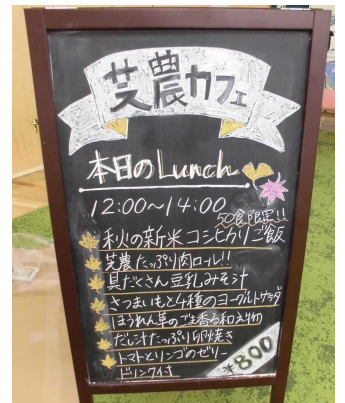 芝農カフェ
本日のLunch
12:00〜14:00
50食限定!!
秋の新米コシヒカリご飯
芝農たっぷり肉ロール!!
具だくさん豆乳みそ汁
さつまいもと4種のヨーグルトサラダ
ほうれん草のごま香る和え物
だし汁たっぷり卵焼き
トマトとリンゴのゼリー
ドリンク付
¥800